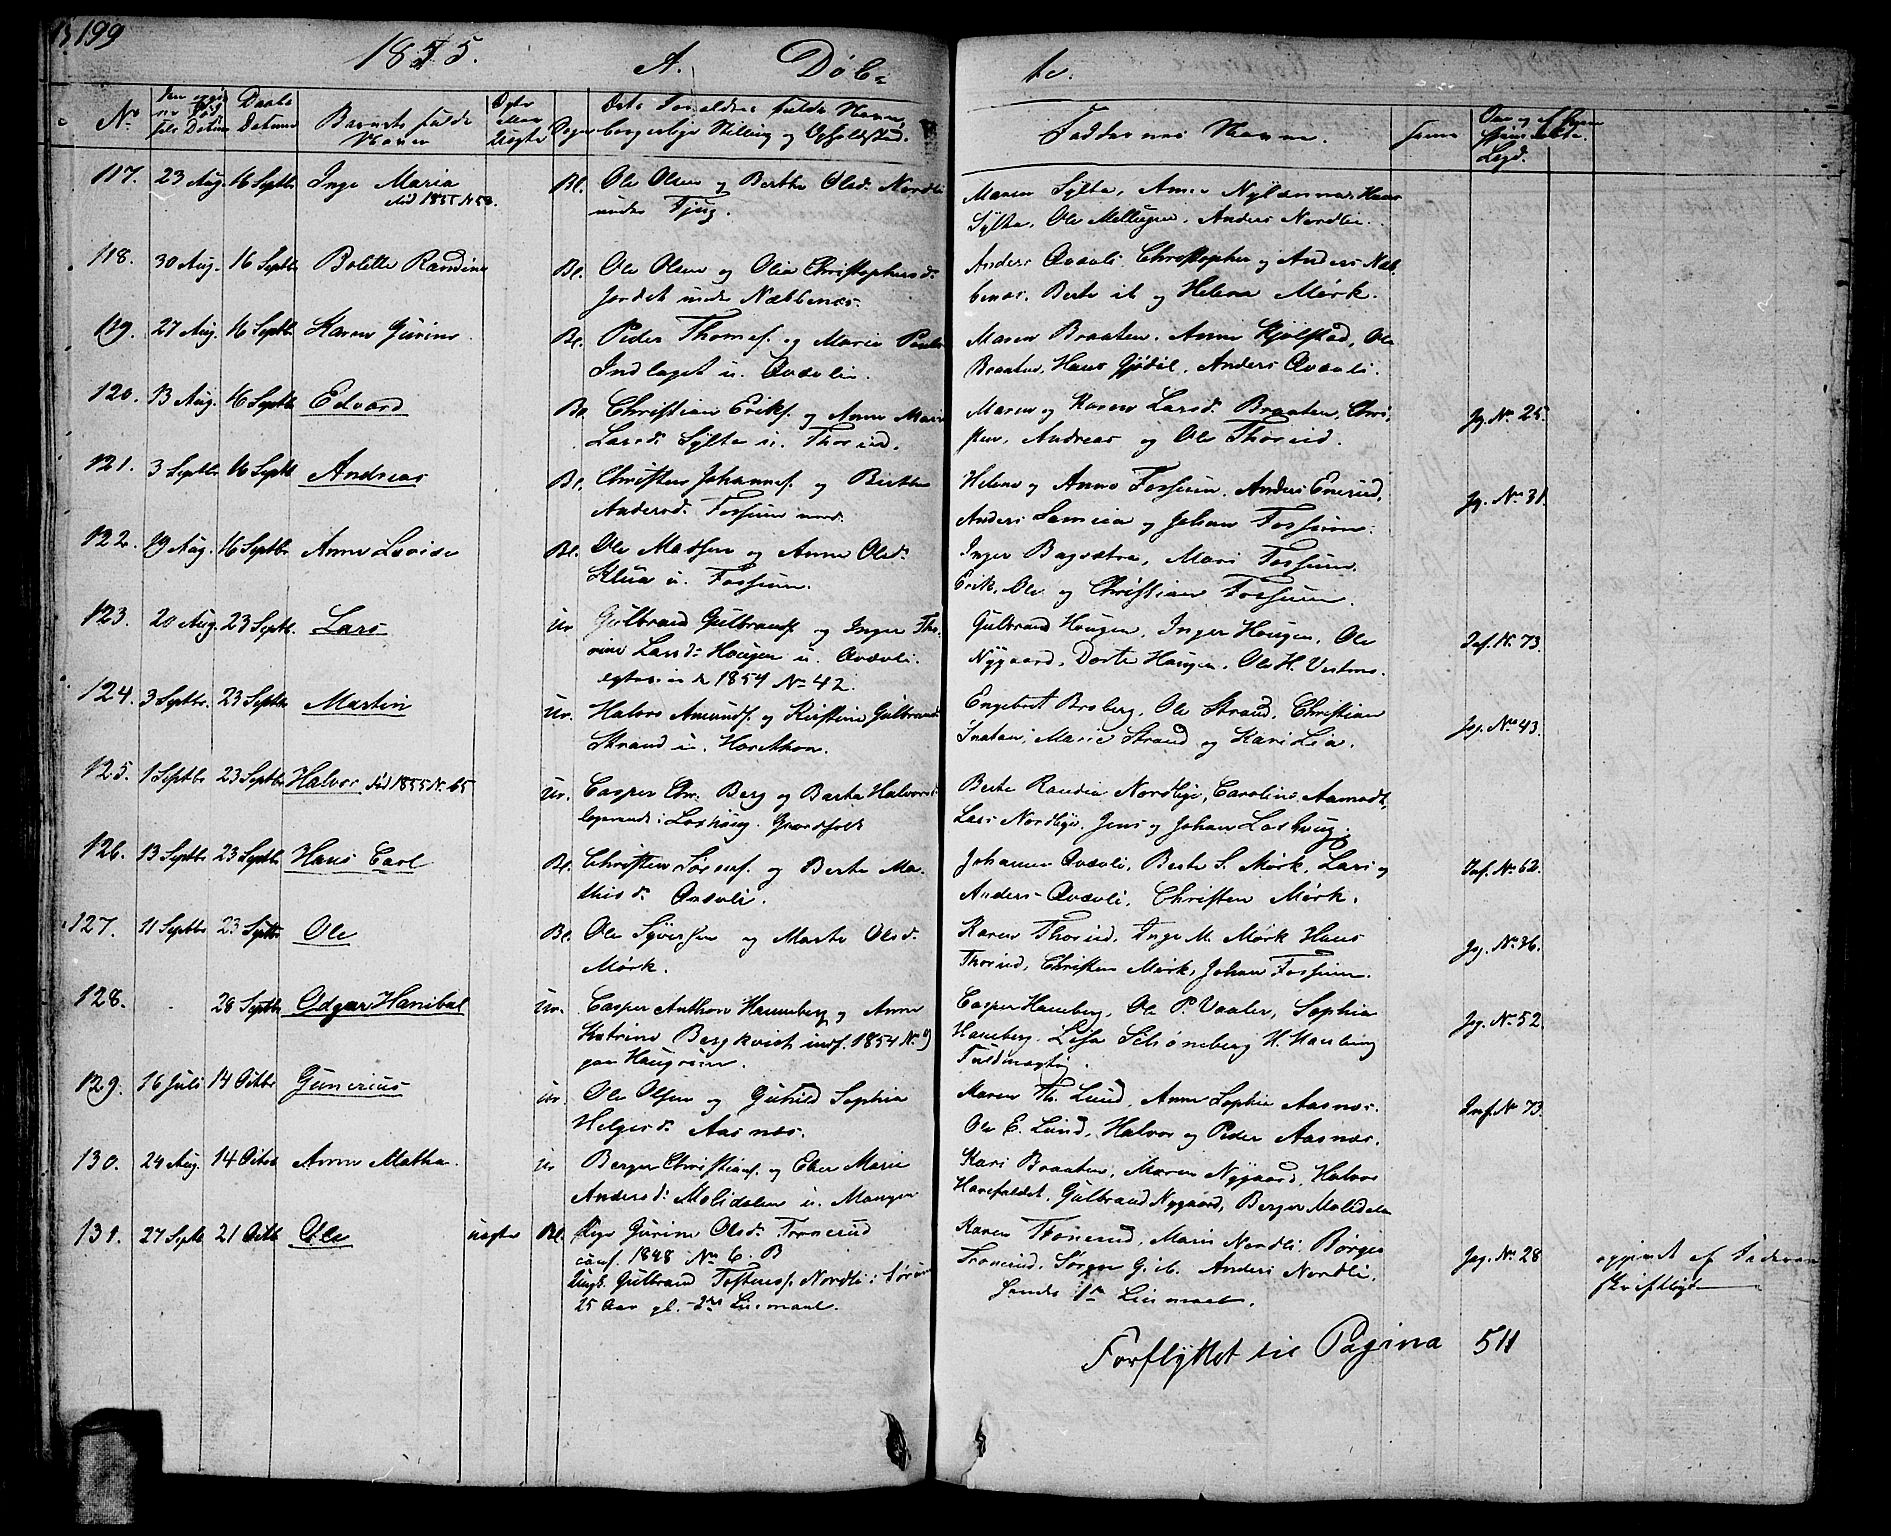 199
1855. A. Døb- te.
No Daabs Datum Barnets fulde Navn Faddernes Navne.
117. 23 Aug. 16 Septbr Inge Maria Bl. Ole Olsen og Berthe Olsd. Nordli
død 1855 N 58.
under Fjug.
Maren Sylta, Anne
Sylta, Ole Mellugen, Anders Nordlie.
118. 30 Aug. 16 Septbr Bolette Randine Bl. Ole Olsen og Olia Christophersd.
Jordet under Næbbenæs.
Anders Qvævli, Christopher og Anders Næb-
benæs, Berte ib og Helena Mørk.
119. 27 Aug. 16 Septbr Karen Gurine Bl. Peder Thomes. og Marie
Indlaget u. Qvævli.
Maren Braaten, Anne Kjølstad, Ole
Braaten, Hans Gjødøl, Anders Qvævli.
120. 13 Aug. 16 Septbr Edvard Bl. Christian Eriks. og Anne Marie
Larsd. Sylta u. Thorud.
Maren og Karen Larsd. Braaten, Chri-
sten, Andreas og Ole Thorud.
Jg. No 25.
121. 3 Septbr. 16 Septb Andreas Bl. Christen Johannes. og Birthe
Andersd. Fossum nord.
Helene og Anne Fossum, Anders Enerud,
Anders og Johan Fossum.
Jg. No 31.
122. 19 Aug. 16 Septbr. Anne Lovise Bl. Ole Madsen og Anne Olsd.
u. Fossum.
Inger Bagsætra, Mari Fossum.
Erik, Ole og Christian Fossum.
123. 20 Aug. 23 Septb. Lars Ur Gulbrand Gulbrands. og Inger Tho-
rine Larsd. Hougen u. Qvævli.
1854 No 42.
Gulbrand Hougen, Inger Hougen, Ole
Nygaard, Dorte Haugen, Ole H.
Inf. N. 73.
124. 3 Septbr. 23 Septbr Martin Ur. Halvor Amunds. og Kirstine Gulbrands
Strand u.
Engebret Broberg, Ole Strand, Christian
Marie Strand og Kari Lia.
Jg. No 43.
125. 1 Septbr 23 Septbr Halvor død 1855 N. 65 Ur. Casper Chr. Berg og Berta Halvorsd.
logerende i Loshaug. Gaardfolk
Berte Randia Nordlige, Caroline Aamodt,
Lars Nordlige, Jens og Johan Loshaug.
126. 13 Septbr 23 Septbr Hans Carl Bl. Christen Sørens. og Berte Ma-
thisd. Qvævli.
Johanne Qvævli, Berte S. Mørk, Lars og
Anders Qvævli, Christen Mørk.
Inf. No 62.
127. 11 Septbr 23 Septbr Ole Bl. Ole Syversen og Marte Olsd.
Mørk.
Karen Thorud, Inge M. Mørk Hans
Thorud, Christen Mørk, Johan Fossum.
Jg. No 36.
128. 28 Septbr Edgar Hanibal Ur. Casper Anthon Hanneberg og Anne
Katrine Bergkvist indf. 1854 No
paa Haugrim.
Casper Hanneberg, Ole P. Vaaler, Sophia
Hanneberg, Lisa Schøneberg H.
Fuldmægtig.
Jg. No 52.
129. 16 Juli 14 Octbr Gunerius Ur. Ole Olsen og Gunild Sophia
Helgesd. Aasnæs.
Maren Th. Lund, Anne Sophie Aasnæs.
Ole E. Lund, Halvor og Peder Aasnæs.
Inf. No 73.
130. 24 Aug. 14 Octbr Anne Mathea. Ur Berger Christians. og Ellen Marie
Andersd. Molidalen u. Mangen
Kari Braaten, Maren Nygaard, Halvor
Gulbrand Nygaard, Berger Molidalen
131. 27 Septb 21 Octb Ole uægte Bl. Pige Gurine Olsd. Tronerud
conf. 1848 No 6. B
Ungk. Gulbrand Tostens. Nordli i Sørum
25 Aar gl. Leiermaal.
Karen Tronerud, Maria Nordli, Børger
Tronerud, Søren G. ib. Anders Nordli.
1ste Leiermaal.
Jg. No 28
opgivet af Faderen
skriftligt
Forflyttet til Pagina 511